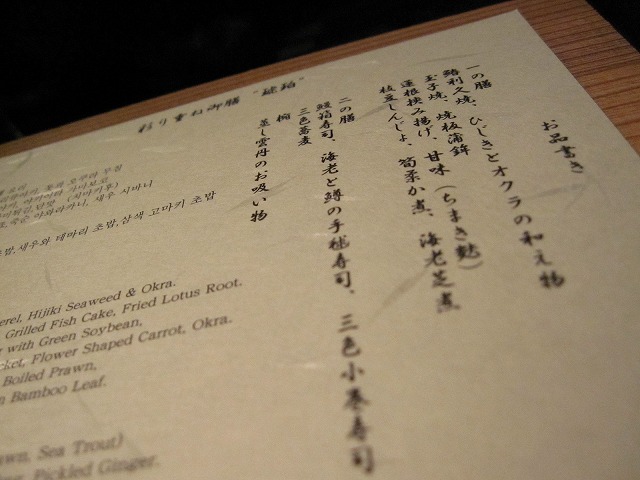 お品書き
彩り重ね御膳 “琥珀”
一の膳
鯖利久焼、ひじきとオクラの和え物
玉子焼、焼板蒲鉾
蓮根挟み揚げ、甘味（ちまき麩）
枝豆しんじょ、筍柔か煮、海老芝煮
二の膳
鰻箱寿司、海老と鱒の手毬寿司、三色小巻寿司
三色蕎麦
椀
蒸し雲丹のお吸い物
새우와 테마리 초밥,삼색 고마키 초밥
Hijiki Seaweed & Okra.
Grilled Fish Cake, Fried Lotus Root.
with Green Soybean,
Flower Shaped Carrot, Okra.
Boiled Prawn,
Bamboo Leaf.
Sea Trout)
Pickled Ginger.